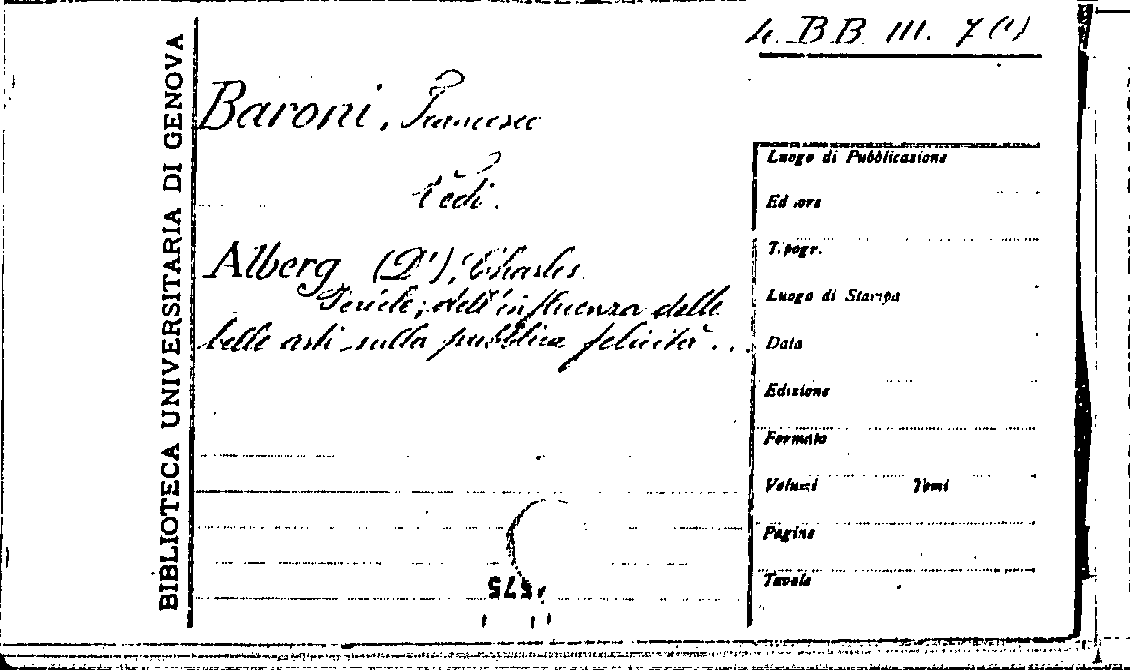 4. B B. III. 7 (1)
BIBLIOTECA UNIVERSITARIA DI GENOVA
Baroni, Francesco
Vedi.
Alberg (D'), Charles
Pericle; dell'influenza delle
belle arti sulla pubblica felicità...
Luogo di Pubblicazione
Ed ore
Tipogr.
Luogo di Stampa
Data
Edizione
Formato
Volumi Tomi
Pagine
Tavole